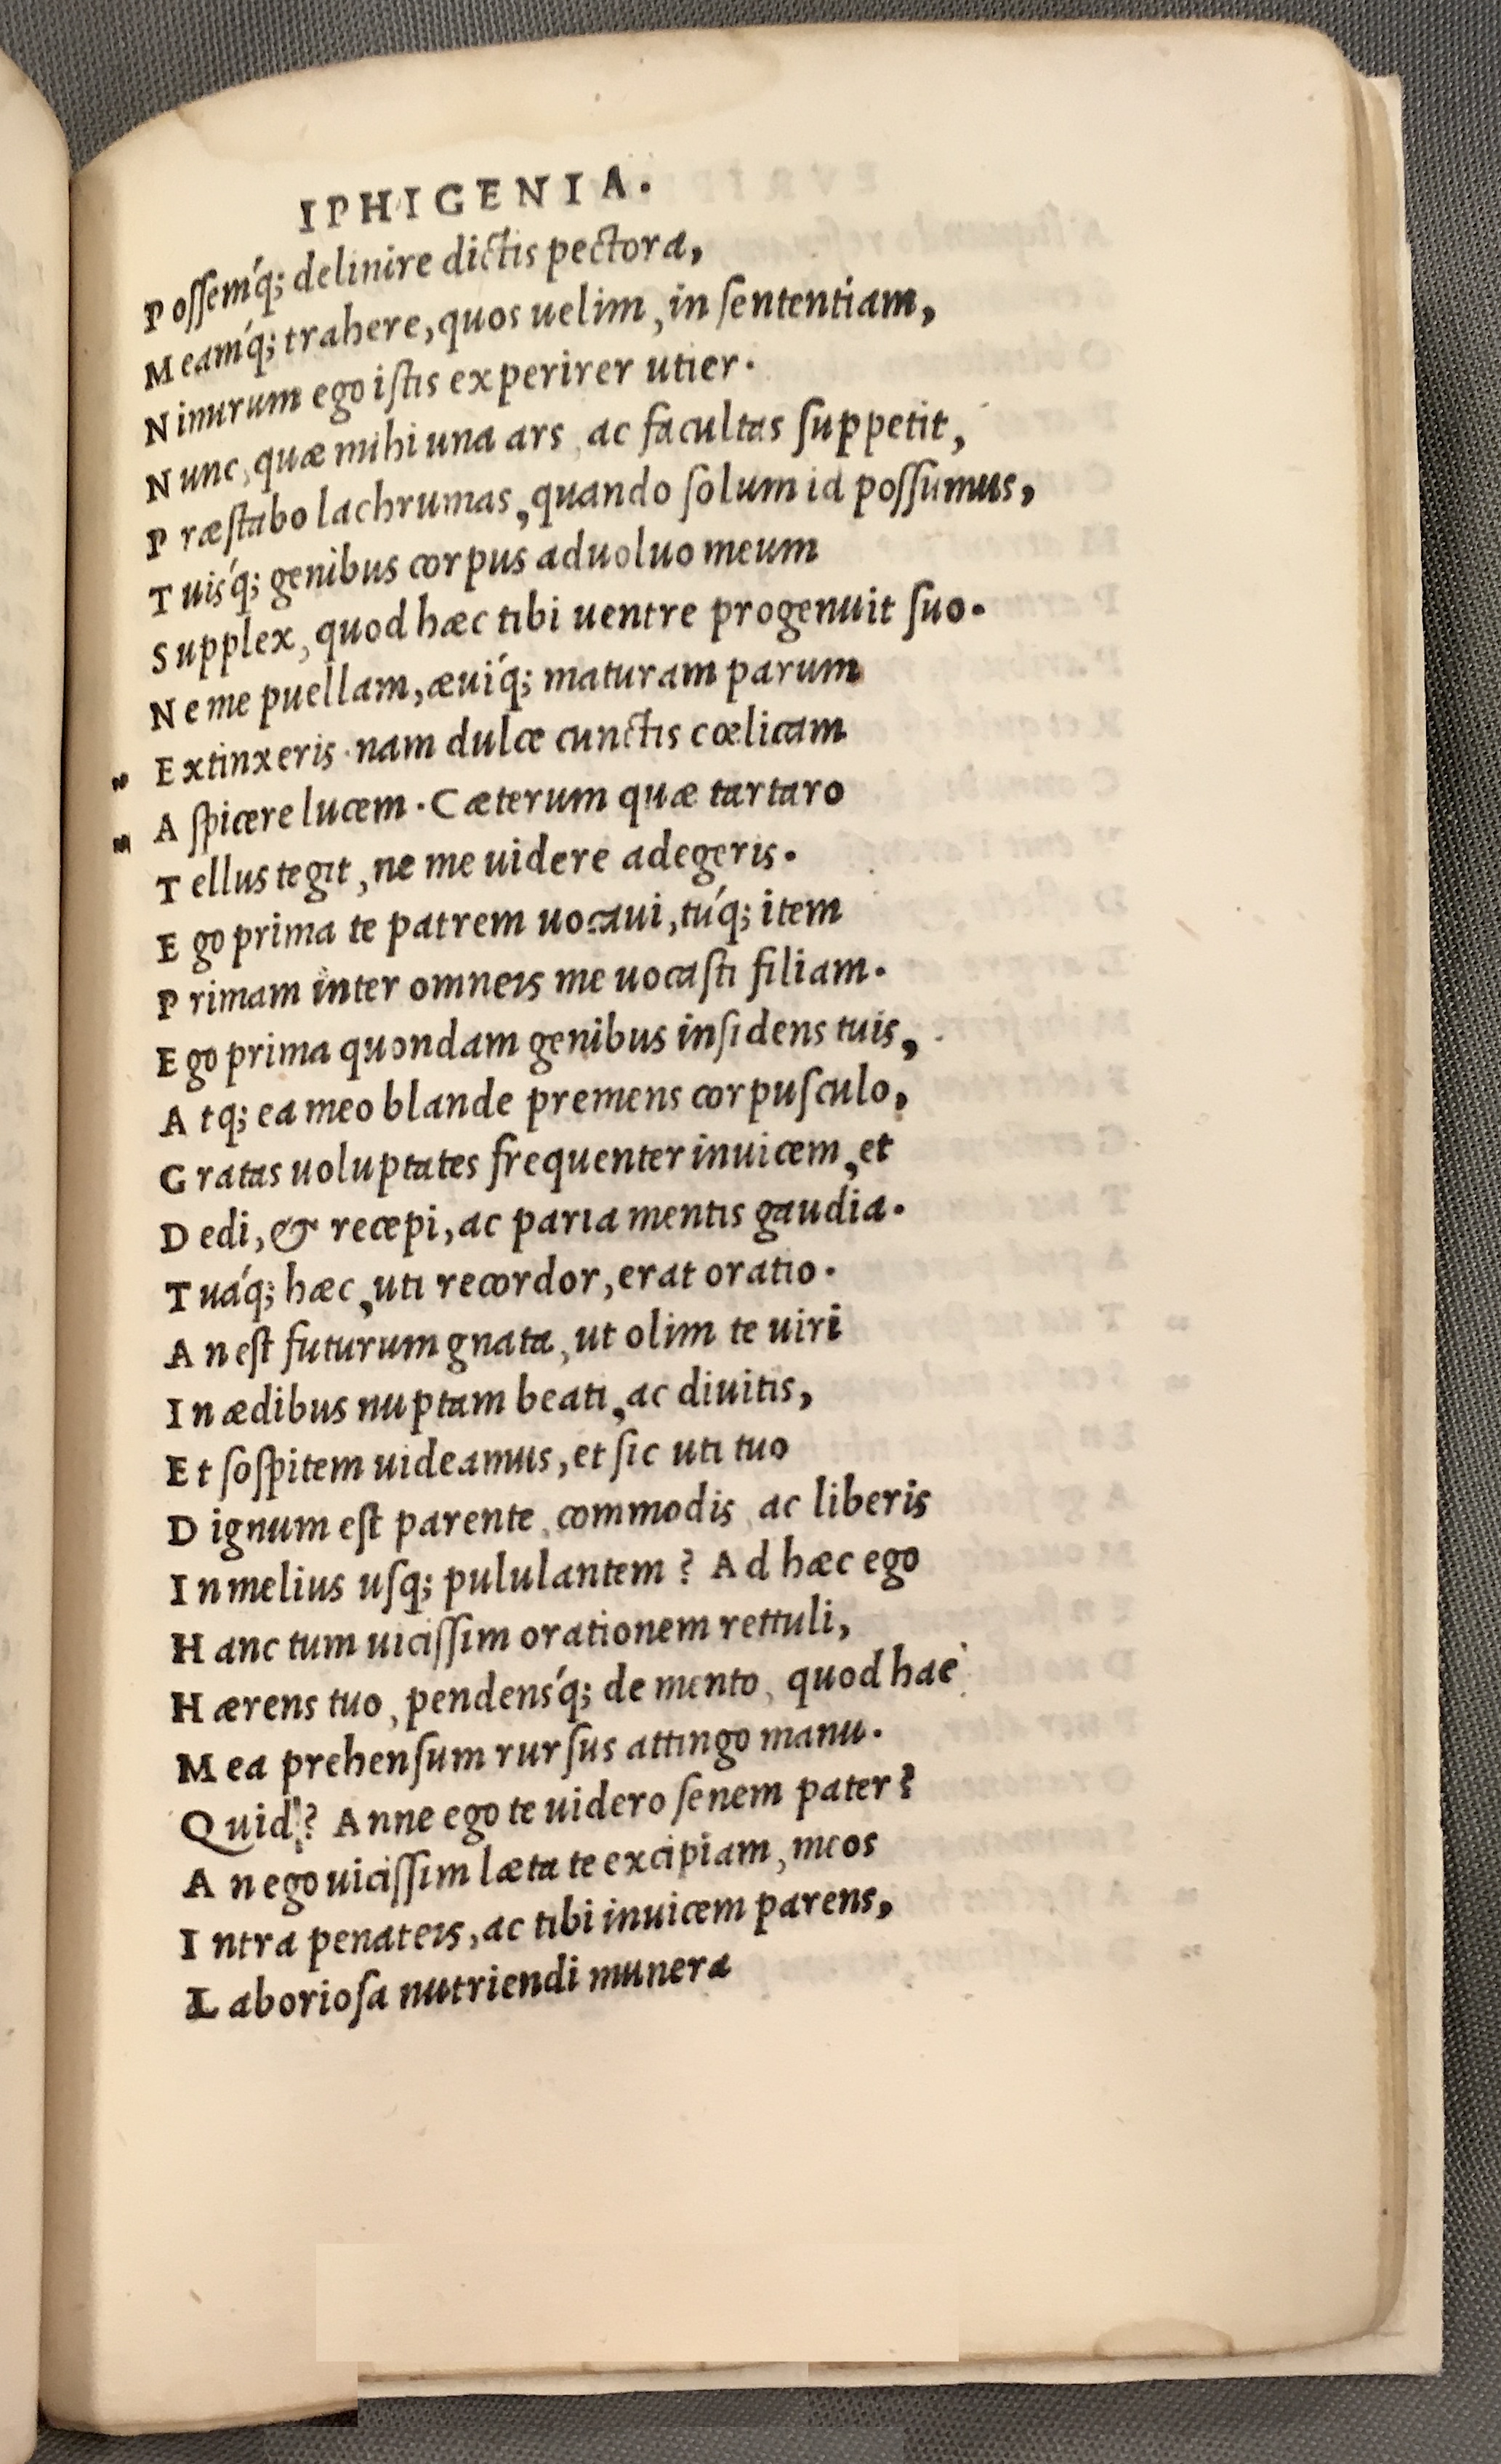 IPHIGENIA.
Possem'q; delinire dictis pectora,
Meam'q; trahere, quos uelim, in sententiam,
Nimirum ego istis experirer utier.
Nunc, quæ mihi una ars, ac facultas suppetit,
Præstabo lachrumas, quando solum id possumus,
Tuis'q; genibus corpus aduoluo meum
Supplex, quod hæc tibi uentre progenuit suo.
Ne me puellam, æui'q; maturam parum
" Extinxeris. nam dulce cunctis cœlicam
" Aspicere lucem. Cæterum quæ tartaro
Tellus tegit, ne me uidere adegeris.
Ego prima te patrem uocaui, tu'q; item
Primam inter omneis me uocasti filiam.
Ego prima quondam genibus insidens tuis,
Atq; ea meo blande premens corpusculo,
Gratas uoluptates frequenter inuicem, et
Dedi, & recepi, ac paria mentis gaudia.
Tuá'q; hæc, uti recordor, erat oratio.
An est futurum gnata, ut olim te uiri
In ædibus nuptam beati, ac diuitis,
Et sospitem uideamus, et sic uti tuo
Dignum est parente, commodis, ac liberis
In melius usq; pululantem? Ad hæc ego
Hanc tum uicissim orationem rettuli,
Hærens tuo, pendens'q; de mento, quod hac
Mea prehensum rursus attingo manu.
Quid? Anne ego te uidero senem pater?
An ego uicissim læta te excipiam, meos
Intra penateis, ac tibi inuicem parens,
Laboriosa nutriendi munera